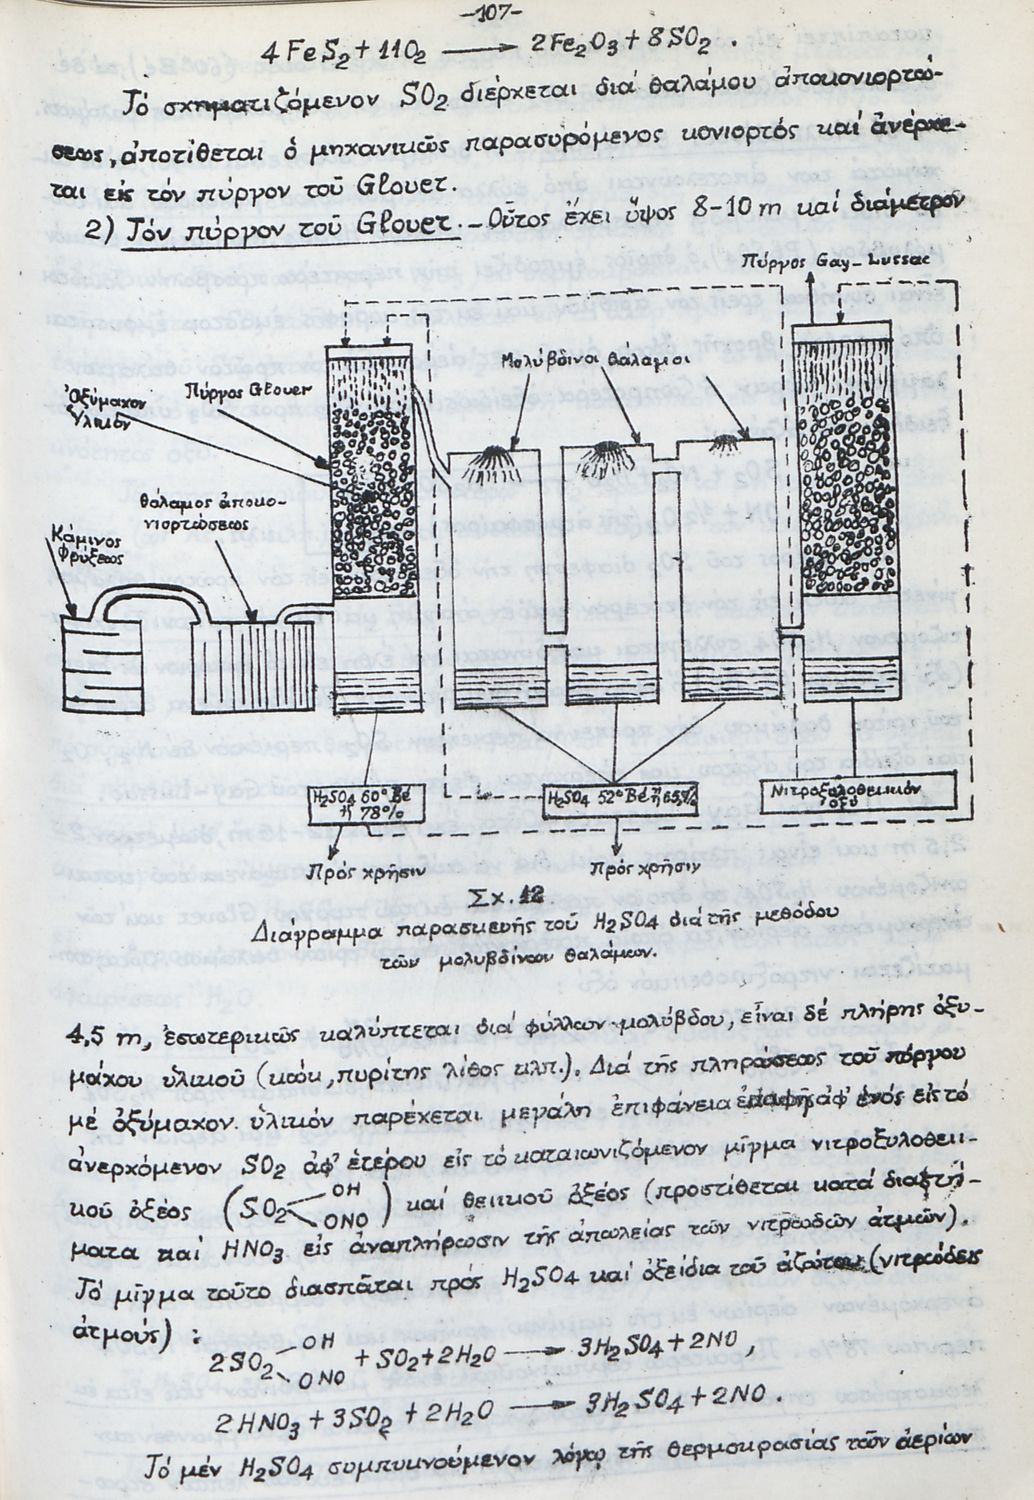 -107-
4 FeS2 + 11O2 ⟶ 2Fe2O3 + 8SO2 .
Τό σχηματιζόμενον SO2 διέρχεται διά θαλάμου ἀποκονιορτώ-
σεως, ἀποτίθεται ὁ μηχανικῶς παρασυρόμενος κονιορτός καί ἀνέρχε-
ται εἰς τόν πύργον τοῦ Glover.
2) Τόν πύργον τοῦ Glover. - Οὗτος ἔχει ὕψος 8-10 m καί διάμετρον
Πύργος Gay-Lussac
Μολύβδινοι θάλαμοι
Πύργος Glover
Ὀξύμαχον
ὑλικόν
θάλαμος ἀποκο-
νιορτώσεως
Κάμινος
φρύξεως
H2SO4 60° Bé
ἤ 78%
H2SO4 52° Bé ἤ 65%
Νιτροξυλοθειικόν
ὀξύ
Πρός χρῆσιν
Πρός χρῆσιν
Σχ. 12.
Διάγραμμα παρασκευῆς τοῦ H2SO4 διά τῆς μεθόδου
τῶν μολυβδίνων θαλάμων.
4,5 m, ἐσωτερικῶς καλύπτεται διά φύλλων μολύβδου, εἶναι δέ πλήρης ὀξυ-
μάχου ὑλικοῦ (κώκ, πυρίτης λίθος κλπ.). Διά τῆς πληρώσεως τοῦ πύργου
μέ ὀξύμαχον ὑλικόν παρέχεται μεγάλη ἐπιφάνεια ἐπαφῆς ἀφ' ἑνός εἰς τό
ἀνερχόμενον SO2 ἀφ' ἑτέρου εἰς τό καταιωνιζόμενον μῖγμα νιτροξυλοθειι-
κοῦ ὀξέος (SO2 OH ONO) καί θειικοῦ ὀξέος (προστίθεται κατά διαστή-
ματα καί HNO3 εἰς ἀναπλήρωσιν τῆς ἀπωλείας τῶν νιτρωδῶν ἀτμῶν).
Τό μῖγμα τοῦτο διασπᾶται πρός H2SO4 καί ὀξείδια τοῦ ἀζώτου (νιτρώδεις
ἀτμούς) :
2SO2 OH ONO + SO2 + 2H2O ⟶ 3H2SO4 + 2NO ,
2HNO3 + 3SO2 + 2H2O ⟶ 3H2SO4 + 2NO .
Τό μέν H2SO4 συμπυκνούμενον λόγῳ τῆς θερμοκρασίας τῶν ἀερίων